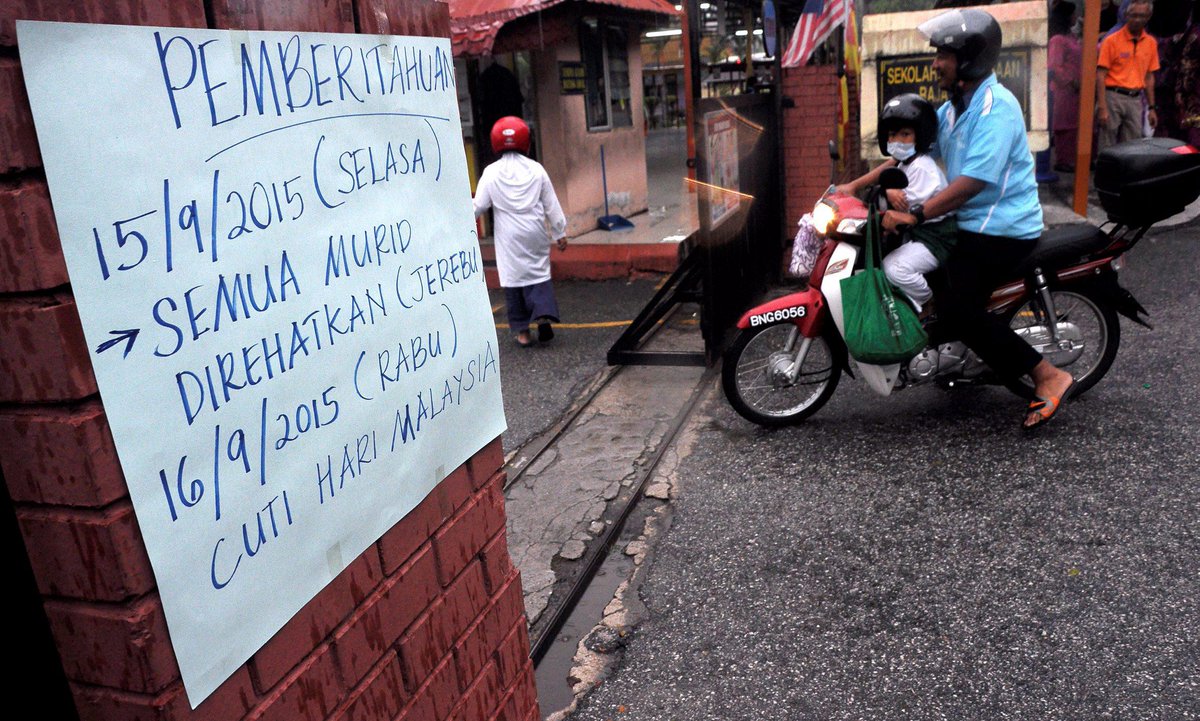 PEMBERITAHUAN
15/9/2015 (SELASA)
→ SEMUA MURID
DIREHATKAN (JEREBU)
16/9/2015 (RABU)
CUTI HARI MALAYSIA
BNG6056
SEKOLAH
RAJA